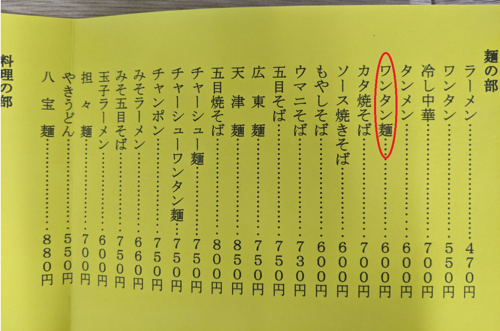 麺の部
ラーメン…………470円
ワンタン…………550円
冷し中華…………700円
タンメン…………600円
ワンタン麺…………600円
カタ焼そば…………700円
ソース焼きそば…………600円
もやしそば…………600円
ウマニそば…………730円
五目そば…………750円
広東麺…………750円
天津麺…………850円
五目焼そば…………800円
チャーシュー麺…………750円
チャーシューワンタン麺…………750円
チャンポン…………750円
みそラーメン…………660円
みそ五目そば…………750円
玉子ラーメン…………600円
担々麺…………700円
やきうどん…………550円
八宝麺…………880円
料理の部